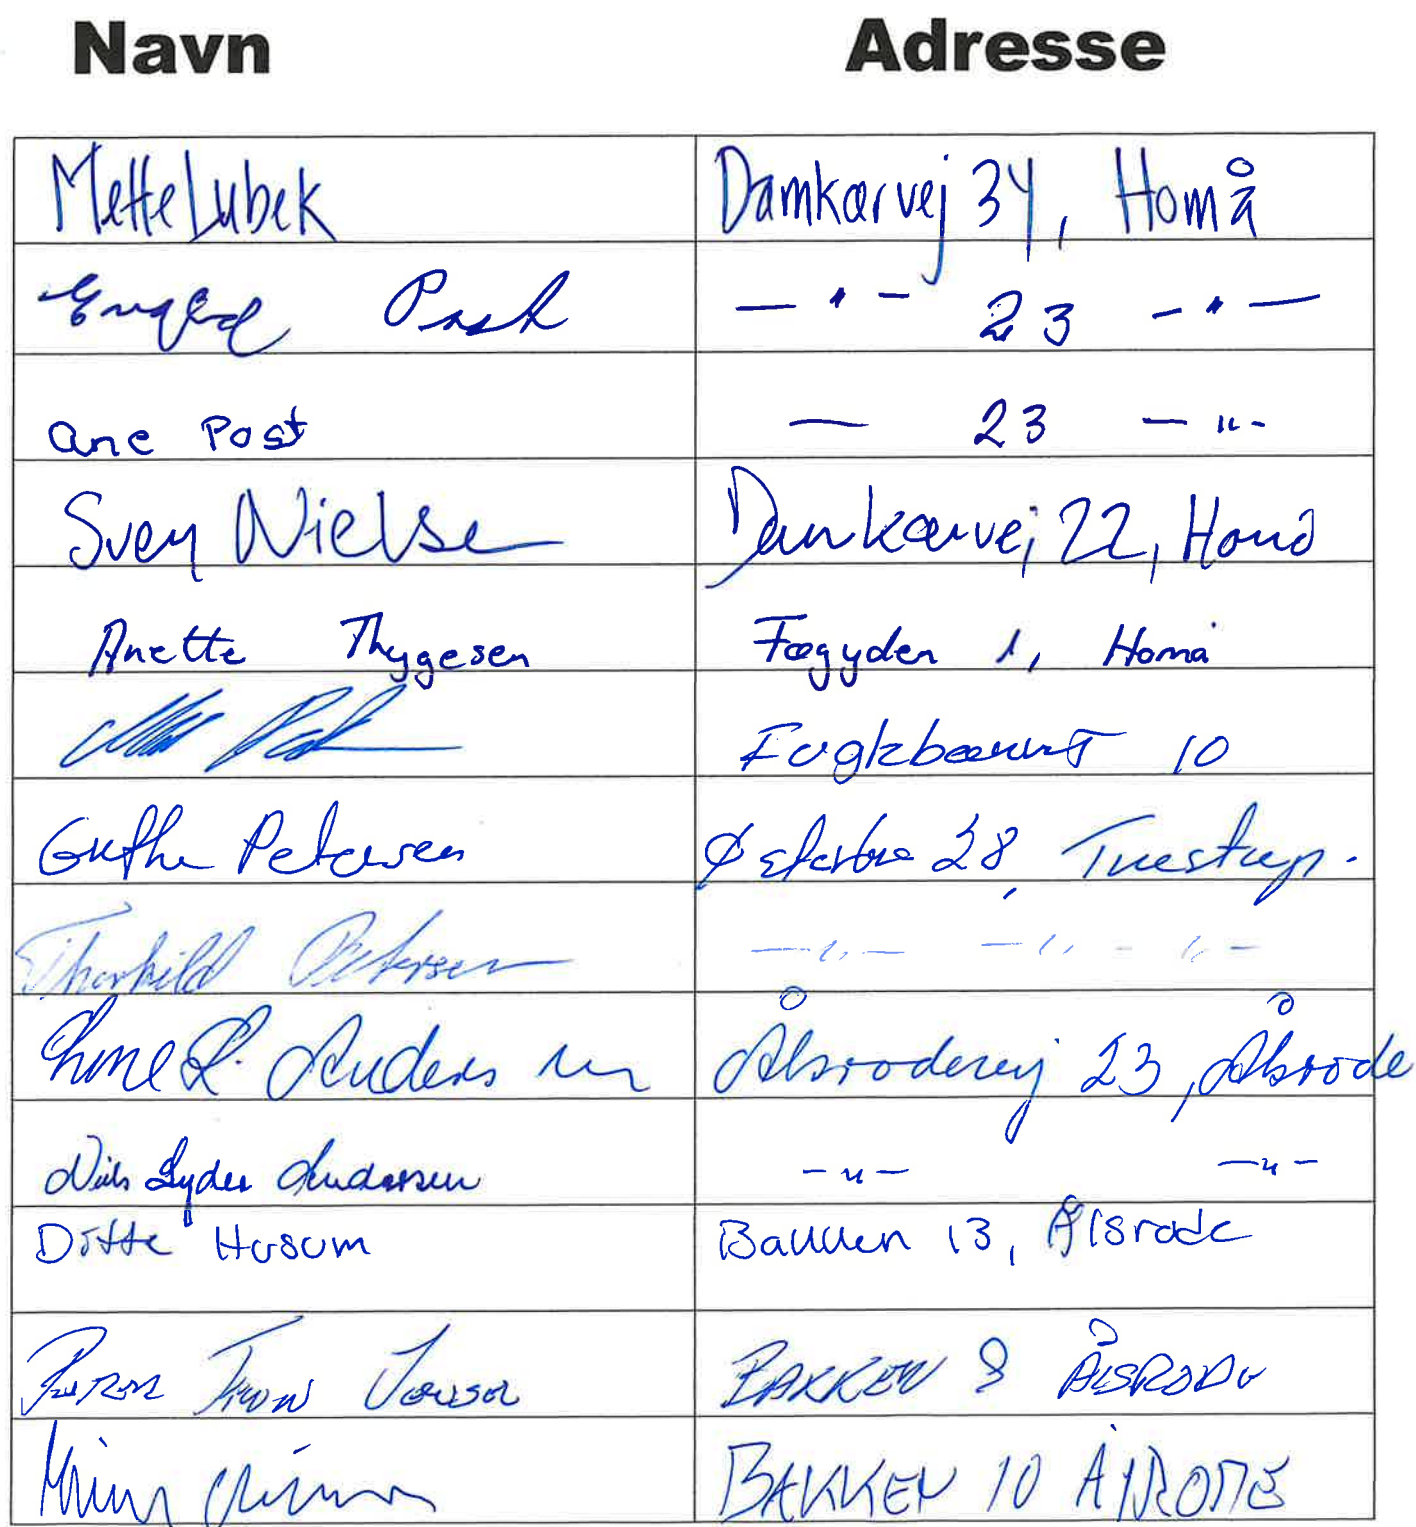 Navn Adresse
Mette Lubek Damkærvej 34, Homå
Post — " — 23 — " —
ane Post — 23 — " —
Sven Nielsen Damkærvej 22, Homå
Anette Thygesen Fægyden 1, Homå
10
Grethe Petersen Østerbro 28, Tirestrup.
Thorkild Petersen — " — — " — " —
Anne L. Andersen Ålsrodevej 23, Ålsrode
Niels Lyder Andersen — " — — " —
Ditte Husum Bakken 13, Ålsrode
BAKKEN 8 ÅLSRODE
BAKKEN 10 ÅLSRODE